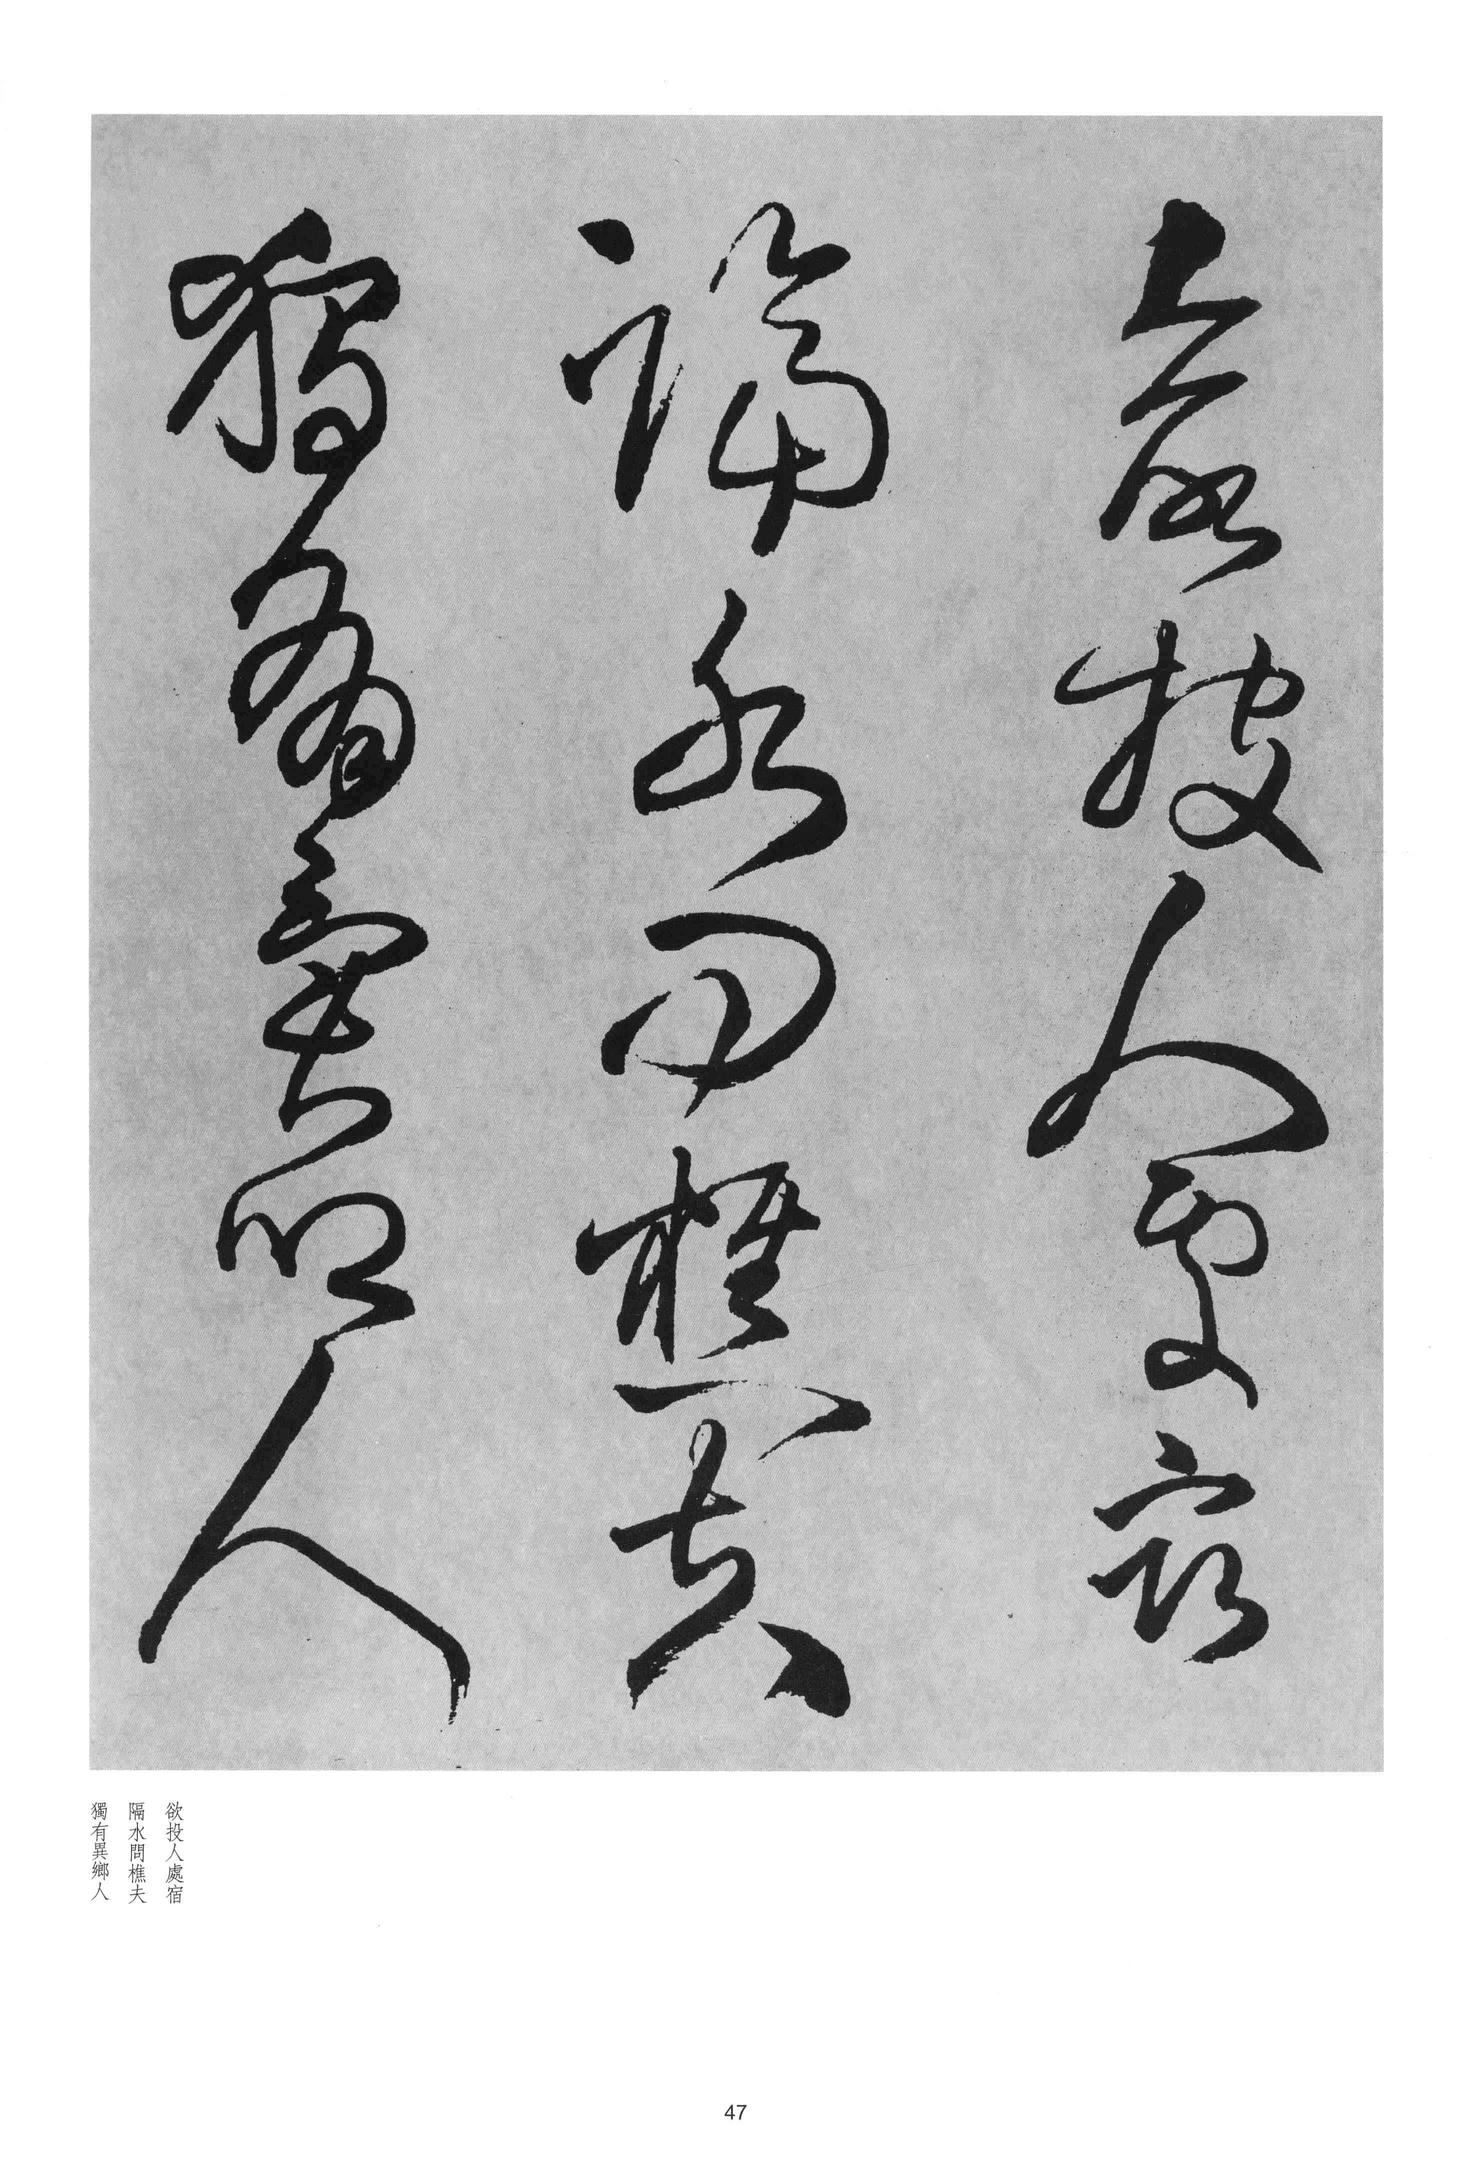 欲投人處宿
隔水問樵夫
獨有異鄉人
欲投人處宿
隔水問樵夫
獨有異鄉人
47